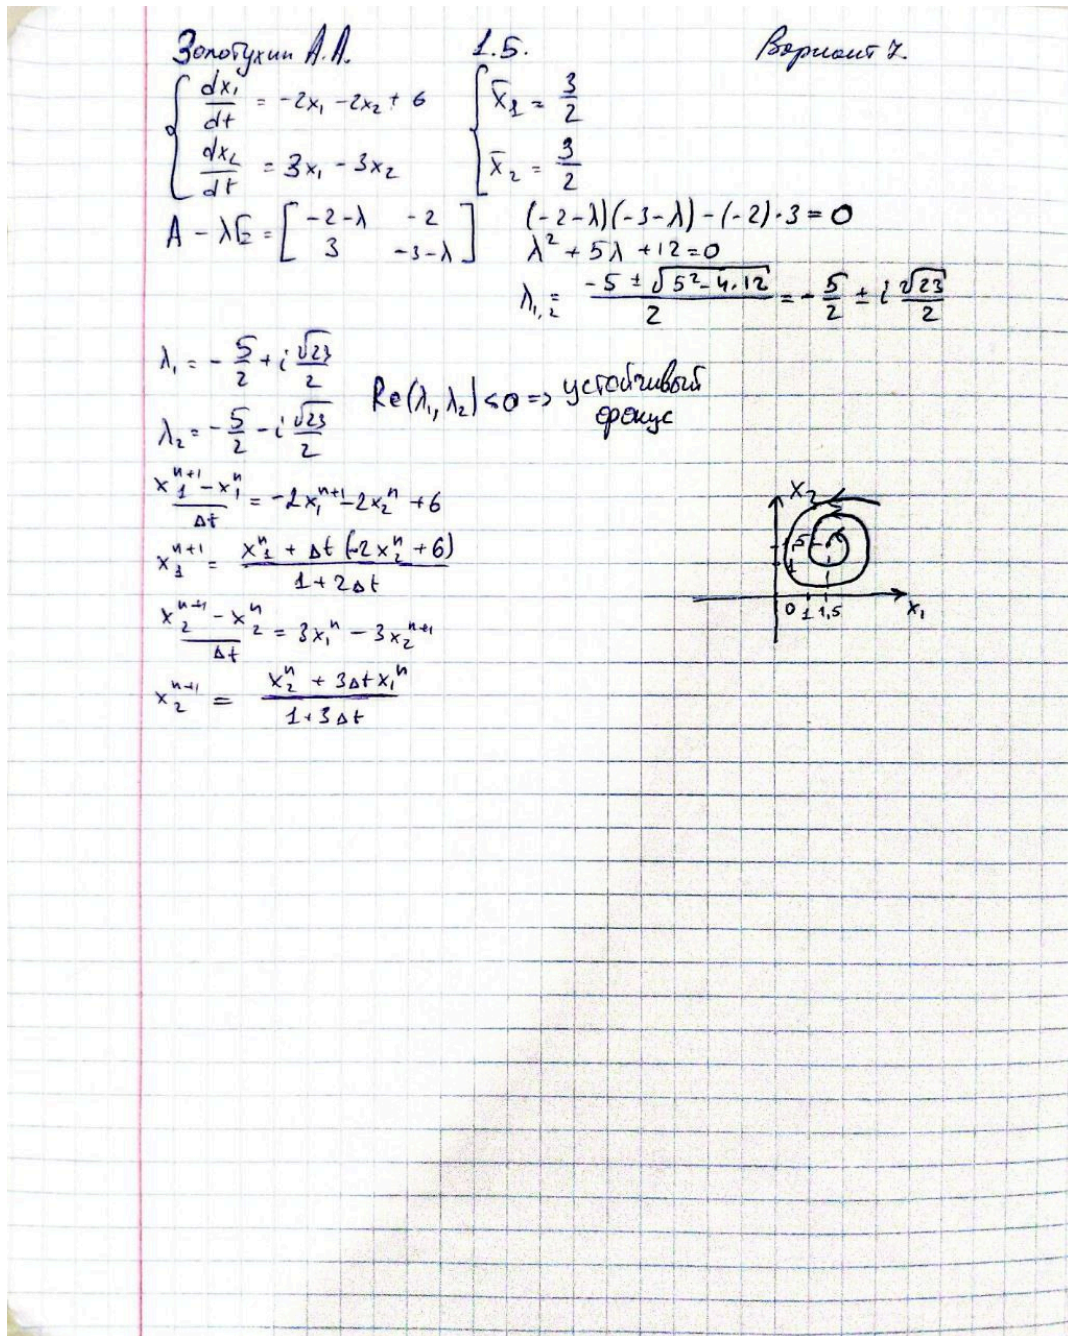 Золотухин А.А. 1.5. Вариант 7.
{ dx₁/dt = -2x₁ - 2x₂ + 6 { x̄₁ = 3/2
dx₂/dt = 3x₁ - 3x₂ x̄₂ = 3/2
A - λE = [ -2-λ -2 ; 3 -3-λ ] (-2-λ)(-3-λ) - (-2)·3 = 0
λ² + 5λ + 12 = 0
λ₁,₂ = (-5 ± √(5² - 4·12))/2 = -5/2 ± i √23/2
λ₁ = -5/2 + i √23/2
λ₂ = -5/2 - i √23/2 Re(λ₁, λ₂) < 0 => устойчивый
фокус
(x₁ⁿ⁺¹ - x₁ⁿ)/Δt = -2x₁ⁿ⁺¹ - 2x₂ⁿ + 6
x₁ⁿ⁺¹ = (x₁ⁿ + Δt(-2x₂ⁿ + 6))/(1 + 2Δt)
(x₂ⁿ⁺¹ - x₂ⁿ)/Δt = 3x₁ⁿ - 3x₂ⁿ⁺¹
x₂ⁿ⁺¹ = (x₂ⁿ + 3Δt x₁ⁿ)/(1 + 3Δt)
x₂
1,5
1
0 1 1,5 x₁